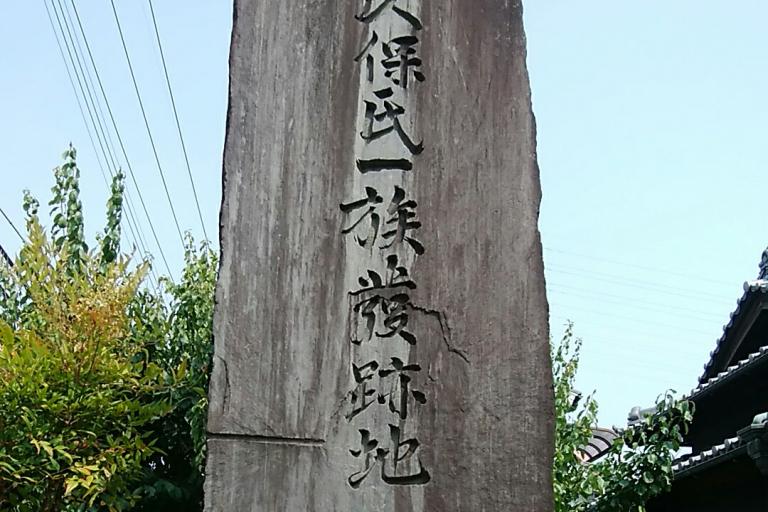 久保氏一族發跡地